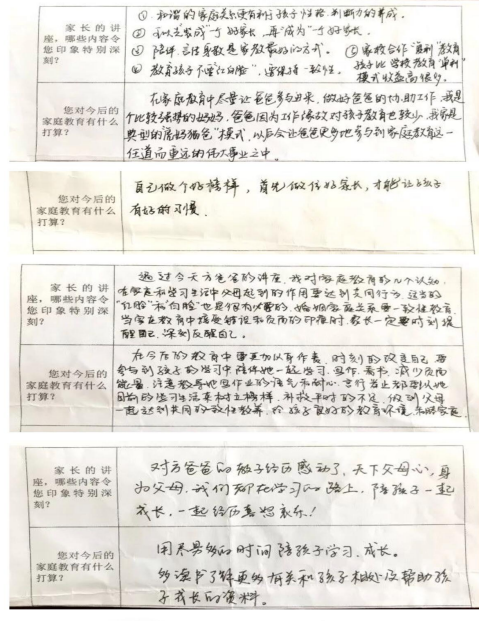 家长的讲
座,哪些内容令
您印象特别深
刻?
① 和谐的家庭关系更有利于孩子性格、判断力的养成。
② 可以先发成一个好家长,再"成为"一个好家长。
③ 陪伴、言传身教是家教最好的方式。
④ 教育孩子不管"红白脸",要保持一致性。
⑤ 家校合作"互利"教育
孩子比学校教育"单利"
模式收益高很多。
您对今后的
家庭教育有什么
打算?
在家庭教育中尽量让爸爸参与进来,做好爸爸的协助工作,我是
个比较强势的妈妈,爸爸因为工作缘故对孩子教育也较少,我家是
典型的"虎妈猫爸"模式,以后会让爸爸更多地参与到家庭教育这一
任重而道远的伟大事业之中。
您对今后的
家庭教育有什么
打算?
自己做个好榜样,首先做位好家长,才能让孩子
有好的习惯.
家长的讲
座,哪些内容令
您印象特别深
刻?
通过今天方爸爸的讲座,我对家庭教育的几个认知,
在家庭和学习生活中父母起到的作用要达到共同行为,适当的
"红脸"和"白脸"也是很有必要的,
当孩子在教育中接受错误和反面的印象时,家长一定要时刻提
醒自己,深刻反醒自己。
您对今后的
家庭教育有什么
打算?
在今后的教育中要更加以身作责,时刻的改变自己,要
参与到孩子的学习中陪伴她一起学习、写作、看书、减少负面
能量,注意教导他写作业的语气和耐心,言行当止都要从她
目前的学习生活来树立榜样,补救平时的不足,做到父母
一起达到共同的教修教养,给孩子良好的教育环境,和睦家庭
家长的讲
座,哪些内容令
您印象特别深
刻?
对方爸爸的教子经历感动了,天下父母心,身
为父母,我们都在学习的路上,陪孩子一起
成长,一起经历喜怒哀乐!
您对今后的
家庭教育有什么
打算?
用尽足够的时间陪孩子学习、成长。
多读书了解更多有关和孩子相处及帮助孩
子成长的资料。